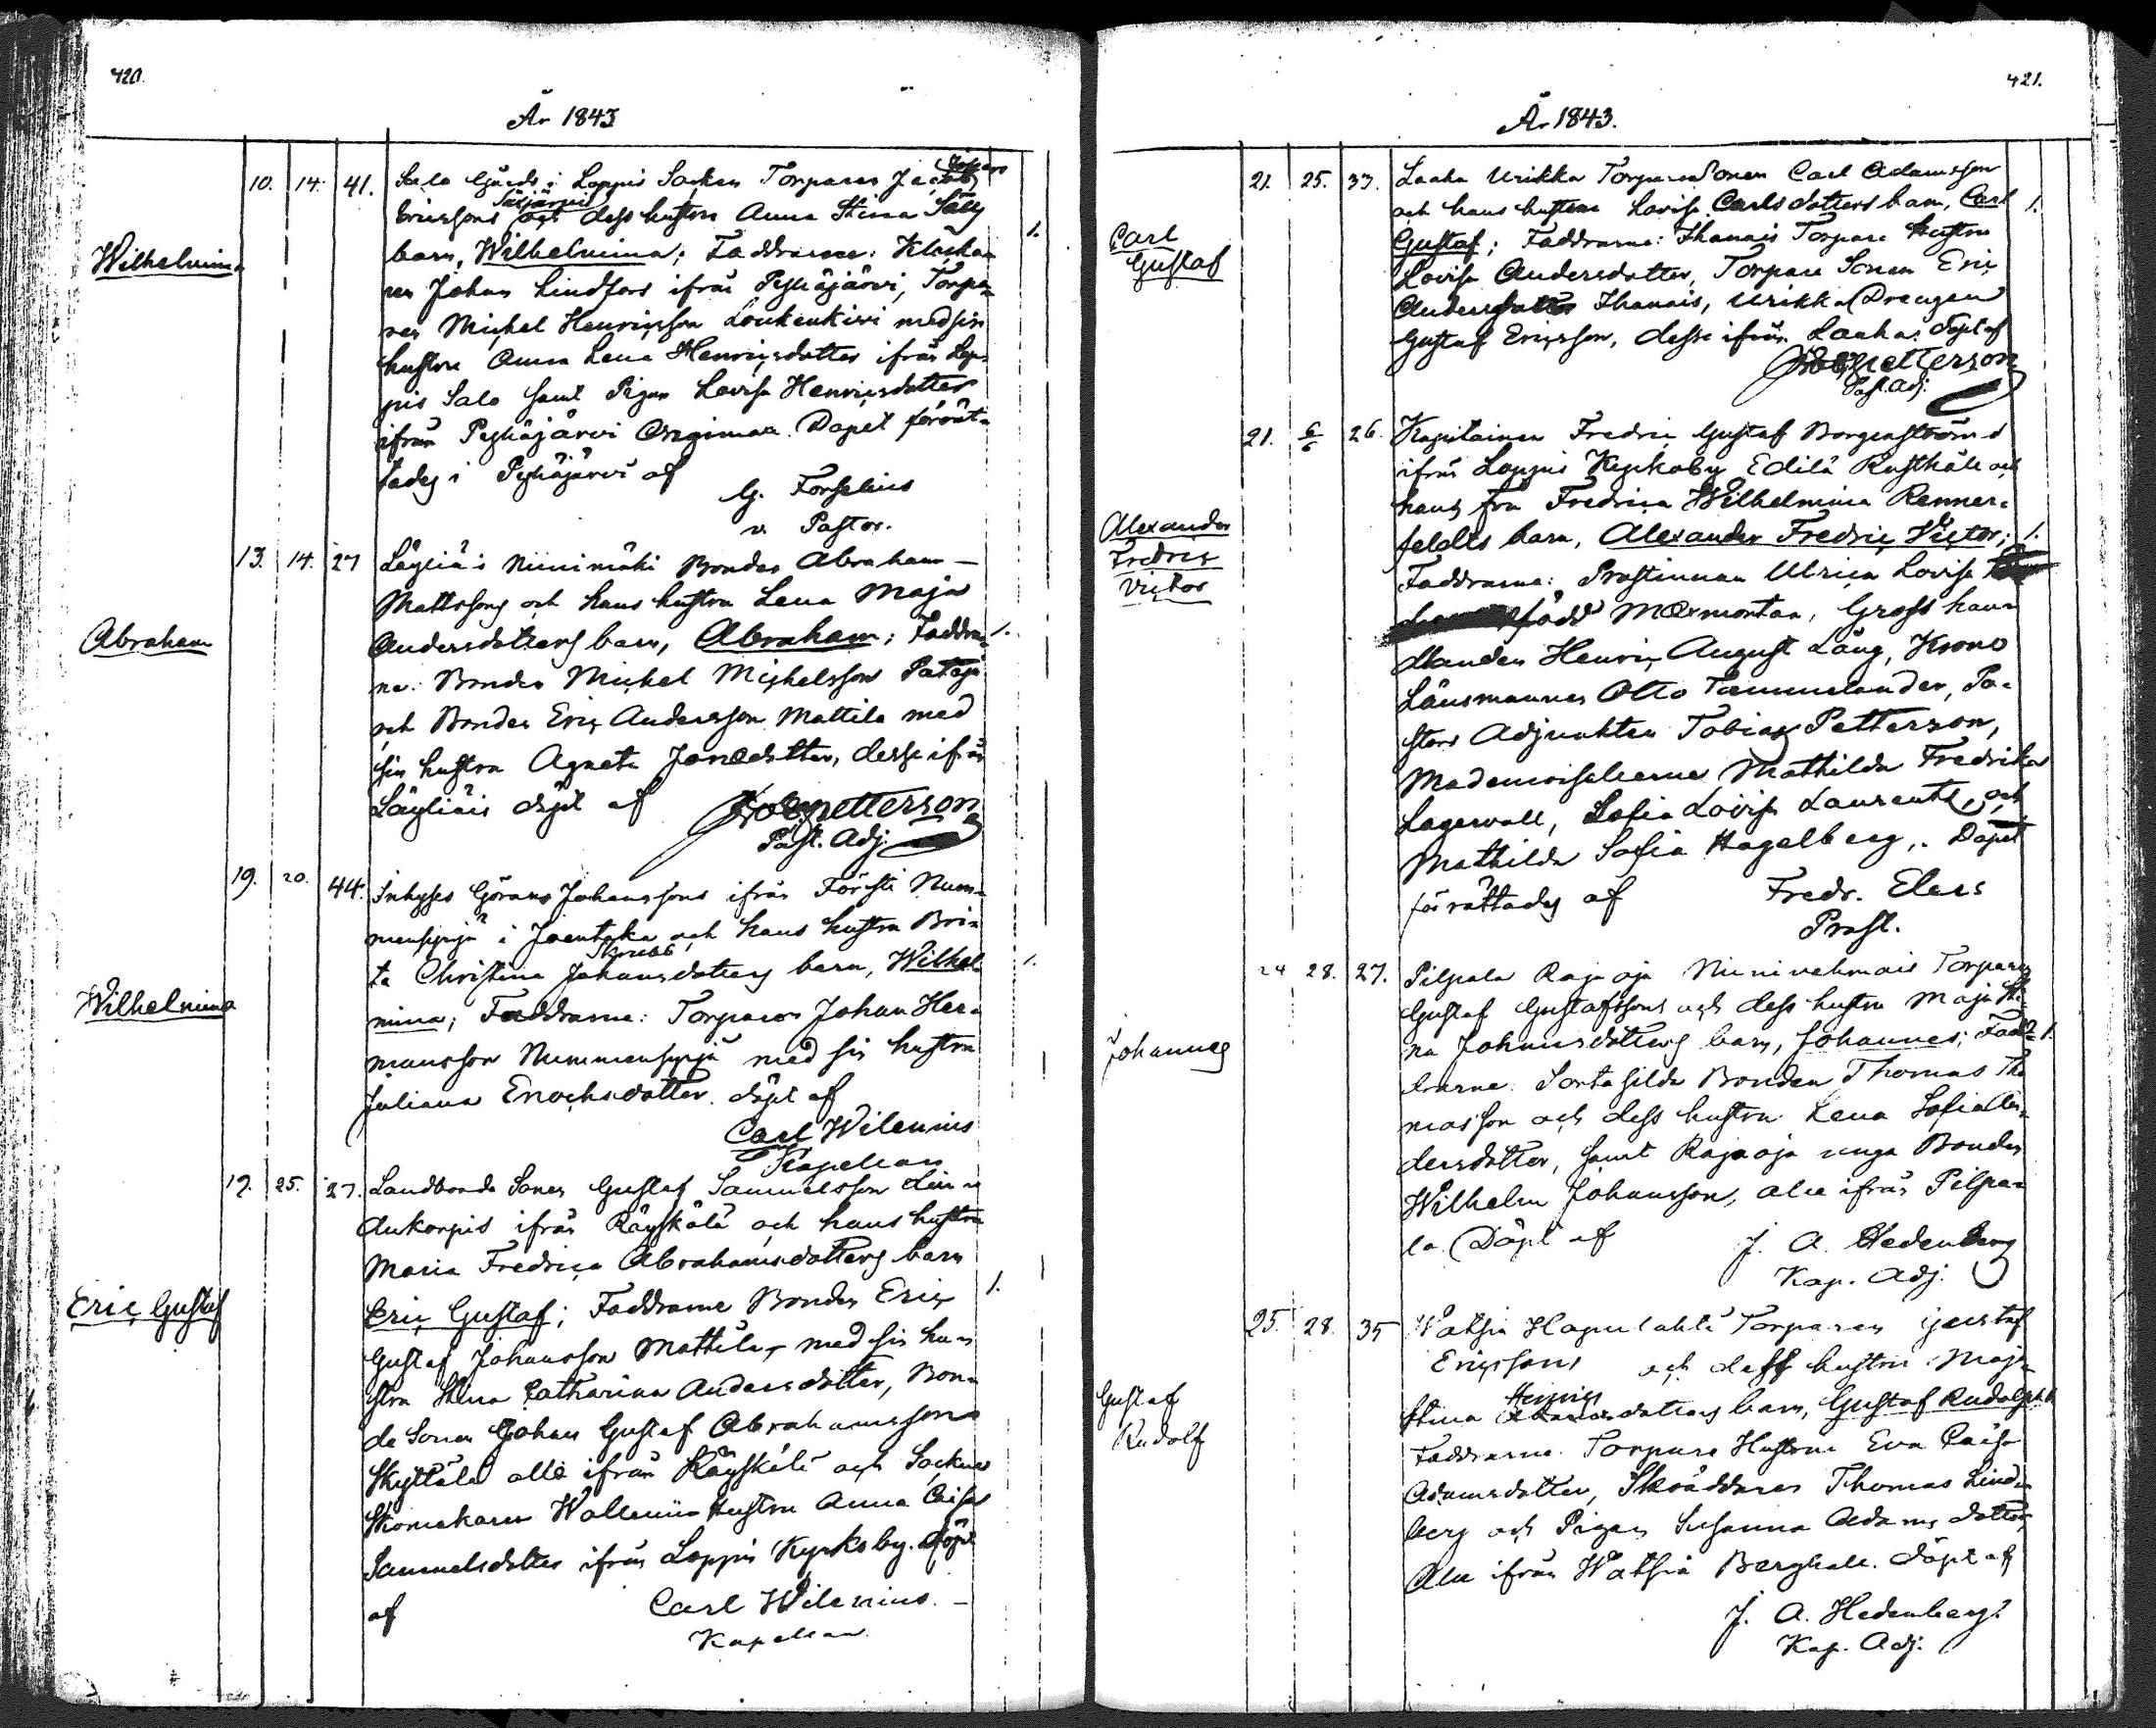 420.
År 1843
10. 14. 41. Salo Gärds i Loppis Socken Torparen Jacob
Erikssons och dess hustru Anna Stina
Wilhelmina
barn, Wilhelmina; Faddrarne: Klocka-
ren Johan Lindfors ifrån Pyhäjärvi, Torpa-
ren Michel Henricsson Loukenkivi med sin
hustru Anna Lena Henricsdotter ifrån Lop-
pis Salo samt Pigan Lovisa Henricsdotter
ifrån Pyhäjärvi Orginmaa. Dopet förrät-
tades i Pyhäjärvi af
G. Forselius
v. Pastor.
13. 14. 27 Läyliä i Niinimäki Bonden Abraham
Mattssons och hans hustru Lena Maja
Abraham
Andersdotters barn, Abraham; Faddrar- 1.
ne: Bonden Michel Michelsson
och Bonden Eric Andersson Mattila med
sin hustru Agneta Jonædotter, desse ifrån
Läyliäis döpt af Tob. Petterson
Past. Adj.
19. 20. 44. Inhyses Görans Johanssons ifrån Försti Num-
menpyjä i Joentaka och hans hustru Bri-
ta Christina Johansdotters barn, Wilhel- 1.
Wilhelmina
mina; Faddrarne: Torparen Johan Her-
mansson Nummenpyjä med sin hustru
Juliana Enochsdotter. döpt af
Carl Wilenius
Kapellan
19. 25. 27. Landbonde Sonen Gustaf Samuelsson Lin-
dukorpis ifrån Räyskälä och hans hustru
Maria Fredrica Abrahamsdotters barn
Eric Gustaf
Eric Gustaf; Faddrarne Bonden Eric 1.
Gustaf Johansson Mattila, med sin hu-
stru Stina Catharina Andersdotter, Bon-
de Sonen Johan Gustaf Abrahamsson
Skyttälä alle ifrån Räyskälä och Sockne
Skomakaren Wallenii hustru Anna Caisa
Samuelsdotter ifrån Loppis Kyrkoby. döpt
af Carl Wilenius.
Kapellan
421.
År 1843.
21. 25. 33. Laaka Urikka Torpare Sonen Carl Adamsson
och hans hustru Lovisa Carlsdotters barn, Carl 1.
Carl
Gustaf
Gustaf; Faddrarne: Ihanais Torpare Hustru
Lovisa Andersdotter, Torpare Sonen Eric
Andersson Ihanais, Urikka Drengen
Gustaf Ericsson, desse ifrån Laaka: döpt af
Tob. Petterson
Past. Adj.
21. 6/6 26. Kapitainen Fredric Gustaf Borgenströms
ifrån Loppis Kyrkoby Edilä Rusthåll och
hans fru Fredrica Wilhelmina Renner-
Alexander
Fredric
Victor
feldts barn, Alexander Fredric Victor; 1.
Faddrarne: Prostinnan Ulrica Lovisa
född Mæxmontan, Grosshand-
landen Henric August Lång, Krono
Länsmannen Otto Tammelander, Pa-
stors Adjunkten Tobias Petterson,
Mademoisellerne Mathilda Fredrika
Lagervall, Sofia Lovisa Laurents, och
Mathilda Sofia Hagelberg,. Dopet
förrättades af Fredr. Elers
Prost.
24 28. 27. Pilpala Rajaoja Niinivehmais Torparen
Gustaf Gustafssons och dess hustru Maja Sti-
Johannes
na Johansdotters barn, Johannes; Fad- 1.
drarne: Sorta Silda Bonden Thomas Tho
masson och dess hustru Lena Sofia An-
dersdotter, samt Rajaoja unga Bonden
Wilhelm Johansson, alle ifrån Pilpa-
la. Döpt af J. A. Hedenberg
Kap. Adj.
25. 28. 35 Watsia Hapulahti Torparen Gustaf
Ericssons och dess hustru Maja
Gustaf
Rudolf
Henrics
Stina dotters barn, Gustaf Rudolph
Faddrarne. Torpare Hustrun Eva Caisa
Adamsdotter, Skräddaren Thomas Lind-
berg och Pigan Susanna Adams dotter,
Alle ifrån Watsia Berghäll. döpt af
J. A. Hedenberg.
Kap. Adj.